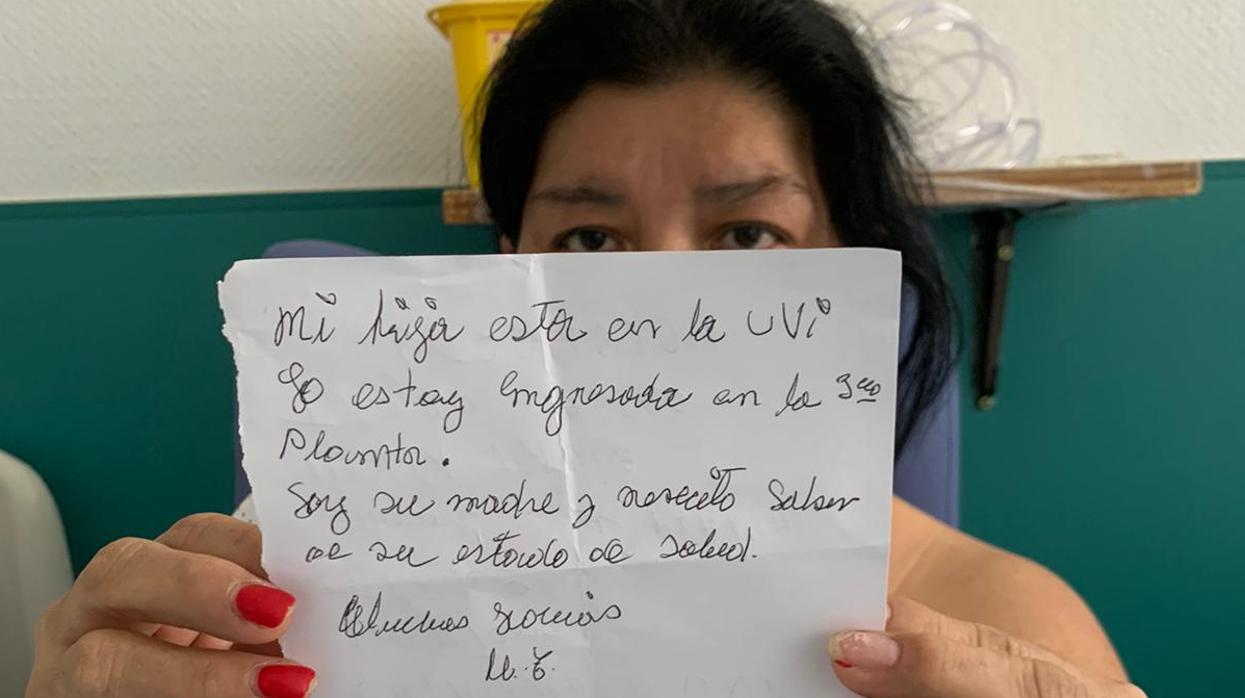 Mi hija esta en la UVi
Yo estoy ingresada en la 3ª
Planta.
Soy su madre y nececito saber
de su estado de salud.
Muchas gracias
M. E.